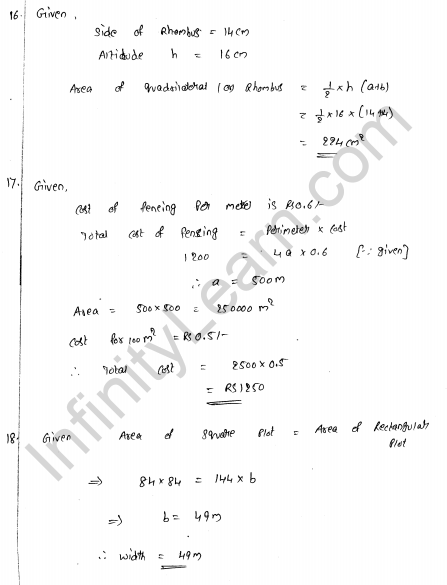 16. Given,
Side of Rhombus = 14cm
Altitude h = 16cm
Area of quadrilateral (or) Rhombus = 1/2 × h (a+b)
= 1/2 × 16 × (14+14)
= 224 cm²
17. Given,
Cost of fencing Per meter is RS 0.6/-
Total cost of Fencing = Perimeter × cost
1200 = 4a × 0.6 [∵ given]
∴ a = 500m
Area = 500×500 = 250000 m²
Cost for 100m² = RS 0.5/-
∴ Total cost = 2500×0.5
= RS 1250
18. Given Area of Square Plot = Area of Rectangular
Plot
⇒ 84×84 = 144×b
⇒ b = 49m
∴ width = 49m
InfinityLearn.com